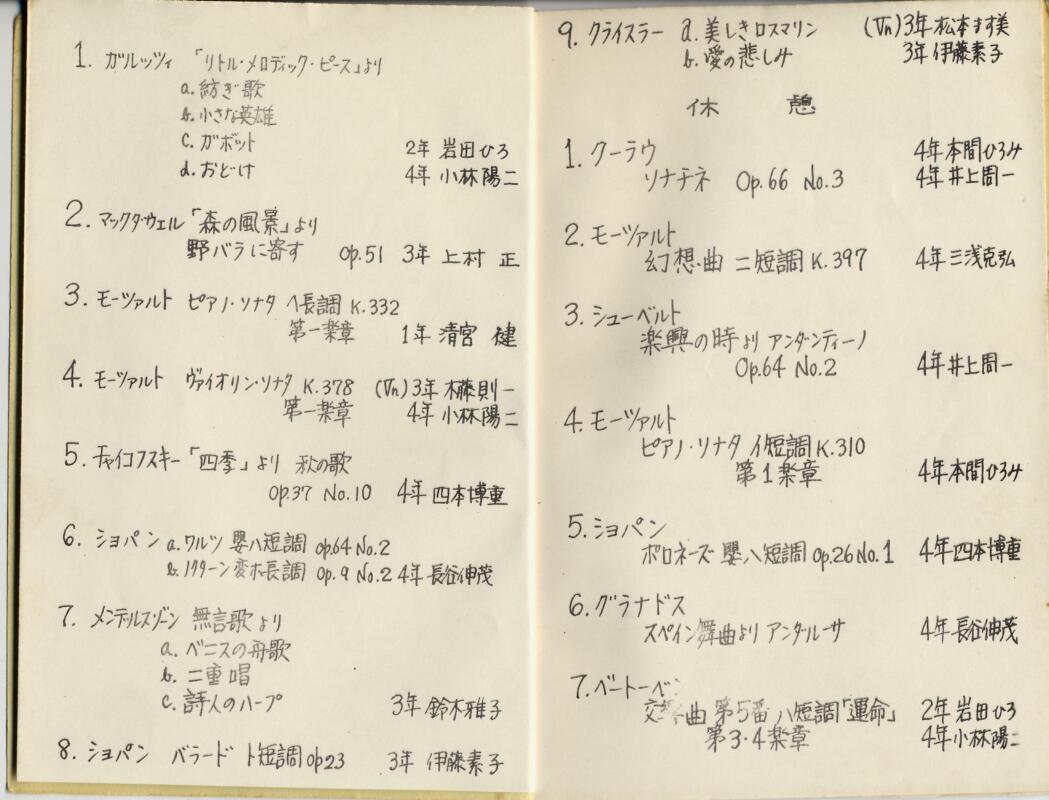 1. ガルッツィ 「リトル・メロディック・ピース」より
a. 紡ぎ歌
b. 小さな英雄
c. ガボット 2年 岩田ひろ
d. おどけ 4年 小林陽二
2. マックダウェル「森の風景」より
野バラに寄す op.51 3年 上村 正
3. モーツァルト ピアノ・ソナタ ヘ長調 K.332
第一楽章 1年 清宮 健
4. モーツァルト ヴァイオリン・ソナタ K.378 (Vn)3年 木藤則一
第一楽章 4年 小林陽二
5. チャイコフスキー「四季」より 秋の歌
op.37 No.10 4年 四本博重
6. ショパン a. ワルツ 嬰ハ短調 op.64 No.2
b. ノクターン変ホ長調 op.9 No.2 4年 長谷伸茂
7. メンデルスゾーン 無言歌より
a. ベニスの舟歌
b. 二重唱
c. 詩人のハープ 3年 鈴木雅子
8. ショパン バラード ト短調 op23 3年 伊藤素子
9. クライスラー a. 美しきロスマリン (Vn)3年 松本ます美
b. 愛の悲しみ 3年 伊藤素子
休 憩
1. クーラウ 4年 本間ひろみ
ソナチネ Op.66 No.3 4年 井上周一
2. モーツァルト
幻想曲 ニ短調 K.397 4年 三浅克弘
3. シューベルト
楽興の時より アンダンティーノ
Op.64 No.2 4年 井上周一
4. モーツァルト
ピアノ・ソナタ イ短調 K.310
第1楽章 4年 本間ひろみ
5. ショパン
ポロネーズ 嬰ハ短調 Op.26 No.1 4年 四本博重
6. グラナドス
スペイン舞曲より アンダルーサ 4年 長谷伸茂
7. ベートーベン
交響曲 第5番 ハ短調「運命」 2年 岩田ひろ
第3・4楽章 4年 小林陽二